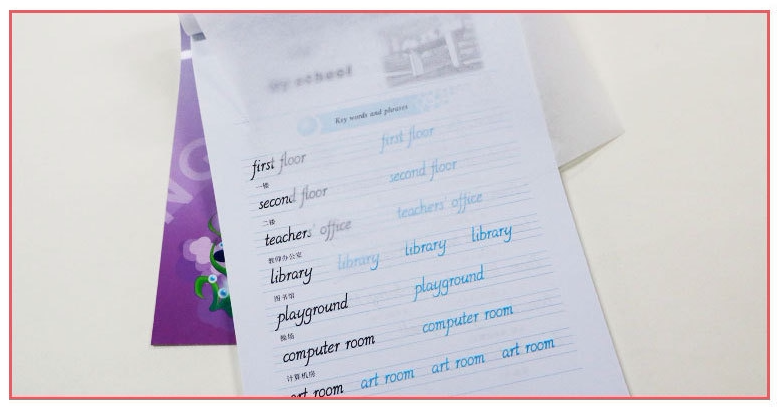 My school
Key words and phrases
first floor first floor
一楼
second floor second floor
二楼
teachers' office teachers' office
教师办公室
library library library library
图书馆
playground playground
操场
computer room computer room
计算机房
art room art room art room art room